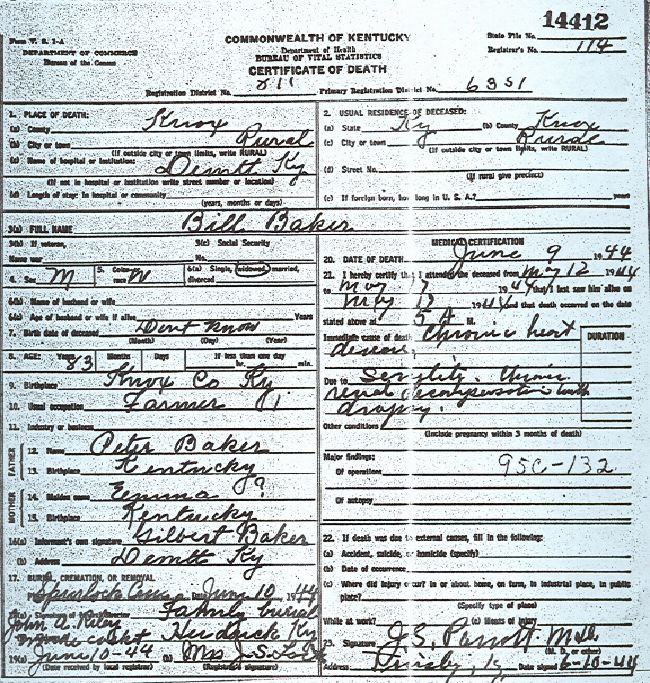 14412
Form V. S. 1-A
DEPARTMENT OF COMMERCE
Bureau of the Census
COMMONWEALTH OF KENTUCKY
Department of Health
BUREAU OF VITAL STATISTICS
CERTIFICATE OF DEATH
State File No.
Registrar's No. 114
Registration District No. 811 Primary Registration District No. 6351
1. PLACE OF DEATH:
(a) County Knox
(b) City or town Rural
(If outside city or town limits, write RURAL)
(c) Name of hospital or institution: Ky
(If not in hospital or institution write street number or location)
(d) Length of stay: In hospital or community
(years, months or days)
2. USUAL RESIDENCE OF DECEASED:
(a) State Ky (b) County Knox
(c) City or town Rural
(If outside city or town limits, write RURAL)
(d) Street No.
(If rural give precinct)
(e) If foreign born, how long in U. S. A.? years
3(a) FULL NAME Bill Baker
3(b) If veteran, 3(c) Social Security
Name war No.
4. Sex M 5. Color or race W 6(a) Single, widowed, married, divorced
6(b) Name of husband or wife
6(c) Age of husband or wife if alive Years
7. Birth date of deceased Dont Know
(Month) (Day) (Year)
8. AGE: Years 83 Months Days If less than one day
hr. min.
9. Birthplace Knox Co Ky.
10. Usual occupation Farmer
11. Industry or business
FATHER
12. Name Peter Baker
13. Birthplace Kentucky
MOTHER
14. Maiden name Emma ?
15. Birthplace Kentucky
16(a) Informant's own signature Gilbert Baker
(b) Address Ky
17. BURIAL, CREMATION, OR REMOVAL
Spurlock Cem Date June 10, 1944
Family burial
John A Riley
made casket Ky
19(a) June 10-44 (b) Mrs J. S.
(Date received by local registrar) (Registrar's signature)
MEDICAL CERTIFICATION
20. DATE OF DEATH June 9 1944
21. I hereby certify that I attended the deceased from May 12 1944
to May 17 1944 that I last saw him alive on
May 17 1944 and that death occurred on the date
stated above at 5 A M.
Immediate cause of death Chronic heart
disease,
DURATION
Due to Senility. Chronic
renal decompensation with
dropsy.
Other conditions
(Include pregnancy within 3 months of death)
Major findings:
Of operations 95C-132
Of autopsy
22. If death was due to external causes, fill in the following:
(a) Accident, suicide, or homicide (specify)
(b) Date of occurrence
(c) Where did injury occur? In or about home, on farm, in industrial place, in public
place?
(Specify type of place)
While at work? (e) Means of injury
23. Signature J. S. Parrott M.D.
(M. D. or other)
Address Ky Date signed 6-10-44